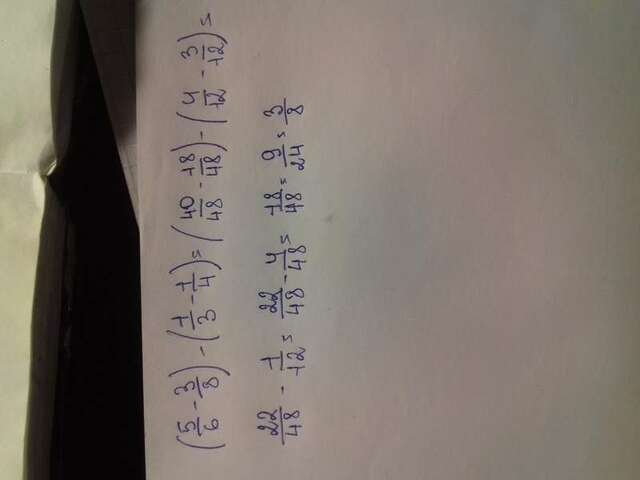 (5/6 - 3/8) - (1/3 - 1/4) = (40/48 - 18/48) - (4/12 - 3/12) =
22/48 - 1/12 = 22/48 - 4/48 = 18/48 = 9/24 = 3/8